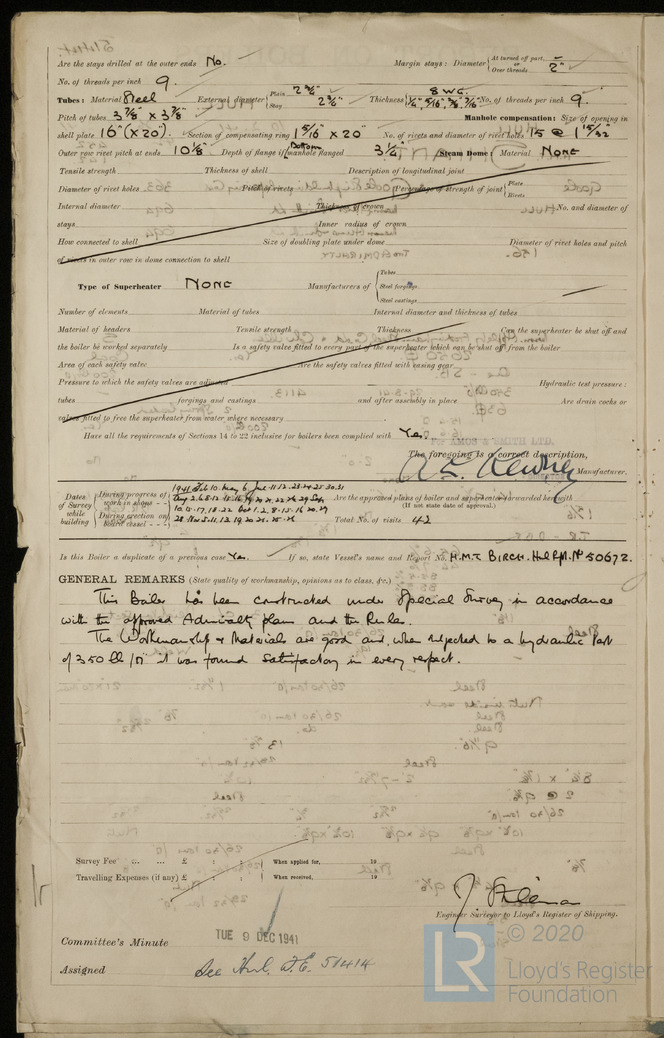 Are the stays drilled at the outer ends No. Margin stays: Diameter { At turned off part, or Over threads 2"
No. of threads per inch 9.
Tubes: Material Steel External diameter { Plain 2 ¾" Stay 2 ¾" Thickness { 8 W.G. No. of threads per inch 9.
Pitch of tubes 3 7/8" x 3 7/8" Manhole compensation: Size of opening in
shell plate 16" (x 20") Section of compensating ring 1 5/16" x 20" No. of rivets and diameter of rivet holes
Outer row rivet pitch at ends 10 1/8" Depth of flange if manhole flanged Bottom 3 ¼" Steam Dome: Material None
Tensile strength Thickness of shell Description of longitudinal joint
Diameter of rivet holes Pitch of rivets Percentage of strength of joint { Plate Rivets
Internal diameter Thickness of crown No. and diameter of
stays Inner radius of crown
How connected to shell Size of doubling plate under dome Diameter of rivet holes and pitch
of rivets in outer row in dome connection to shell
Type of Superheater None Manufacturers of { Tubes Steel forgings Steel castings
Number of elements Material of tubes Internal diameter and thickness of tubes
Material of headers Tensile strength Thickness Can the superheater be shut off and
the boiler be worked separately Is a safety valve fitted to every part of the superheater which can be shut off from the boiler
Area of each safety valve Are the safety valves fitted with easing gear
Pressure to which the safety valves are adjusted Hydraulic test pressure:
tubes forgings and castings and after assembly in place Are drain cocks or
valves fitted to free the superheater from water where necessary
Have all the requirements of Sections 14 to 22 inclusive for boilers been complied with Yes.
For AMOS & SMITH LTD.
The foregoing is a correct description,
Manufacturer.
Dates of Survey while building { During progress of work in shops - - During erection on board vessel - - -
1941 Feb 10. May 6. June 11.12.
Are the approved plans of boiler and superheater forwarded herewith
(If not state date of approval.)
Total No. of visits 42
Is this Boiler a duplicate of a previous case Yes. If so, state Vessel's name and Report No. H.M.T. BIRCH. Hull Rpt. No 50672.
GENERAL REMARKS (State quality of workmanship, opinions as to class, &c.)
This Boiler has been constructed under Special Survey in accordance
with the approved Admiralty plans and the Rules.
The Workmanship & Materials are good and, when subjected to a hydraulic test
of 350 lb/□" it was found satisfactory in every respect.
Survey Fee ... ... £ : : When applied for, 19
Travelling Expenses (if any) £ : : When received, 19
Engineer Surveyor to Lloyd's Register of Shipping.
Committee's Minute TUE 9 DEC 1941
Assigned See Hul. F.E. 51414
LR © 2020
Lloyd's Register
Foundation